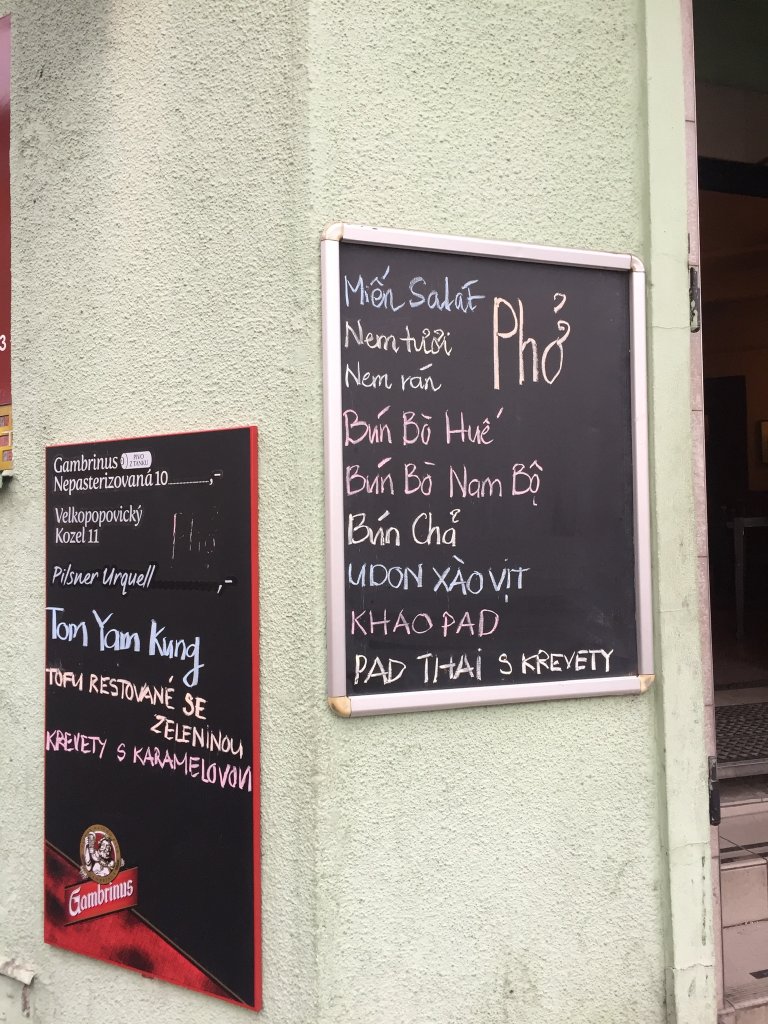 3
Gambrinus PIVO Z TANKU
Nepasterizovaná 10..........,-
Velkopopovický
Kozel 11
Phở
Pilsner Urquell..............,-
Tom Yam Kung
TOFU RESTOVANÉ SE
ZELENINOU
KREVETY S KARAMELOVOU
Gambrinus
Miến Salat
Phở
Nem tươi
Nem rán
Bún Bò Huế
Bún Bò Nam Bộ
Bún Chả
UDON XÀO VỊT
KHAO PAD
PAD THAI S KŘEVETY